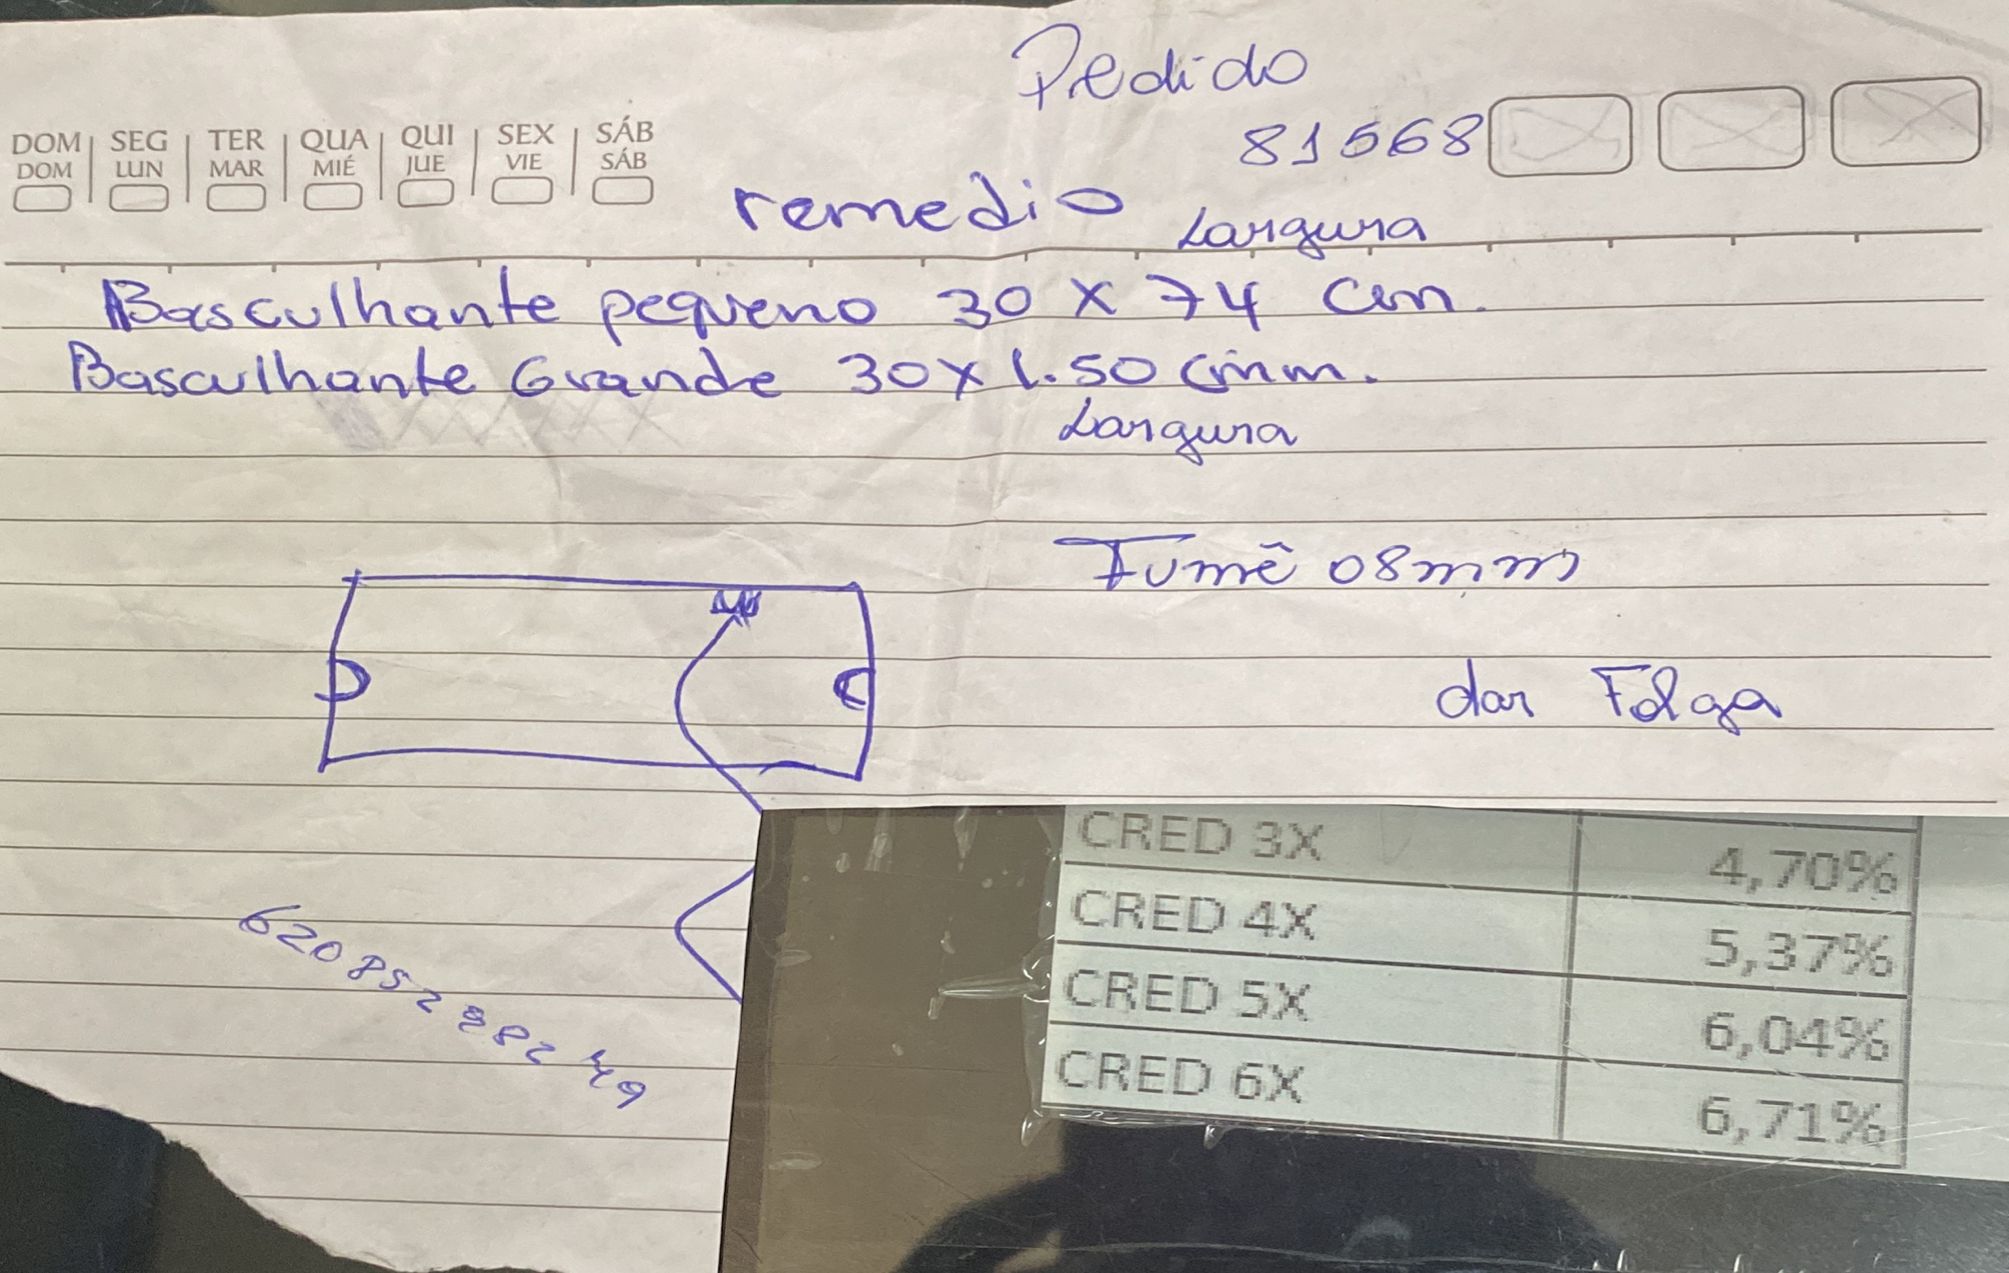 Pedido
81568
DOM SEG TER QUA QUI SEX SÁB
DOM LUN MAR MIÉ JUE VIE SÁB
remedio
Largura
Basculhante pequeno 30 X 74 cm.
Basculhante Grande 30 X 1.50 cmm.
Largura
Fumê 08mm
dar Folga
620 852 882 49
CRED 3X 4,70%
CRED 4X 5,37%
CRED 5X 6,04%
CRED 6X 6,71%